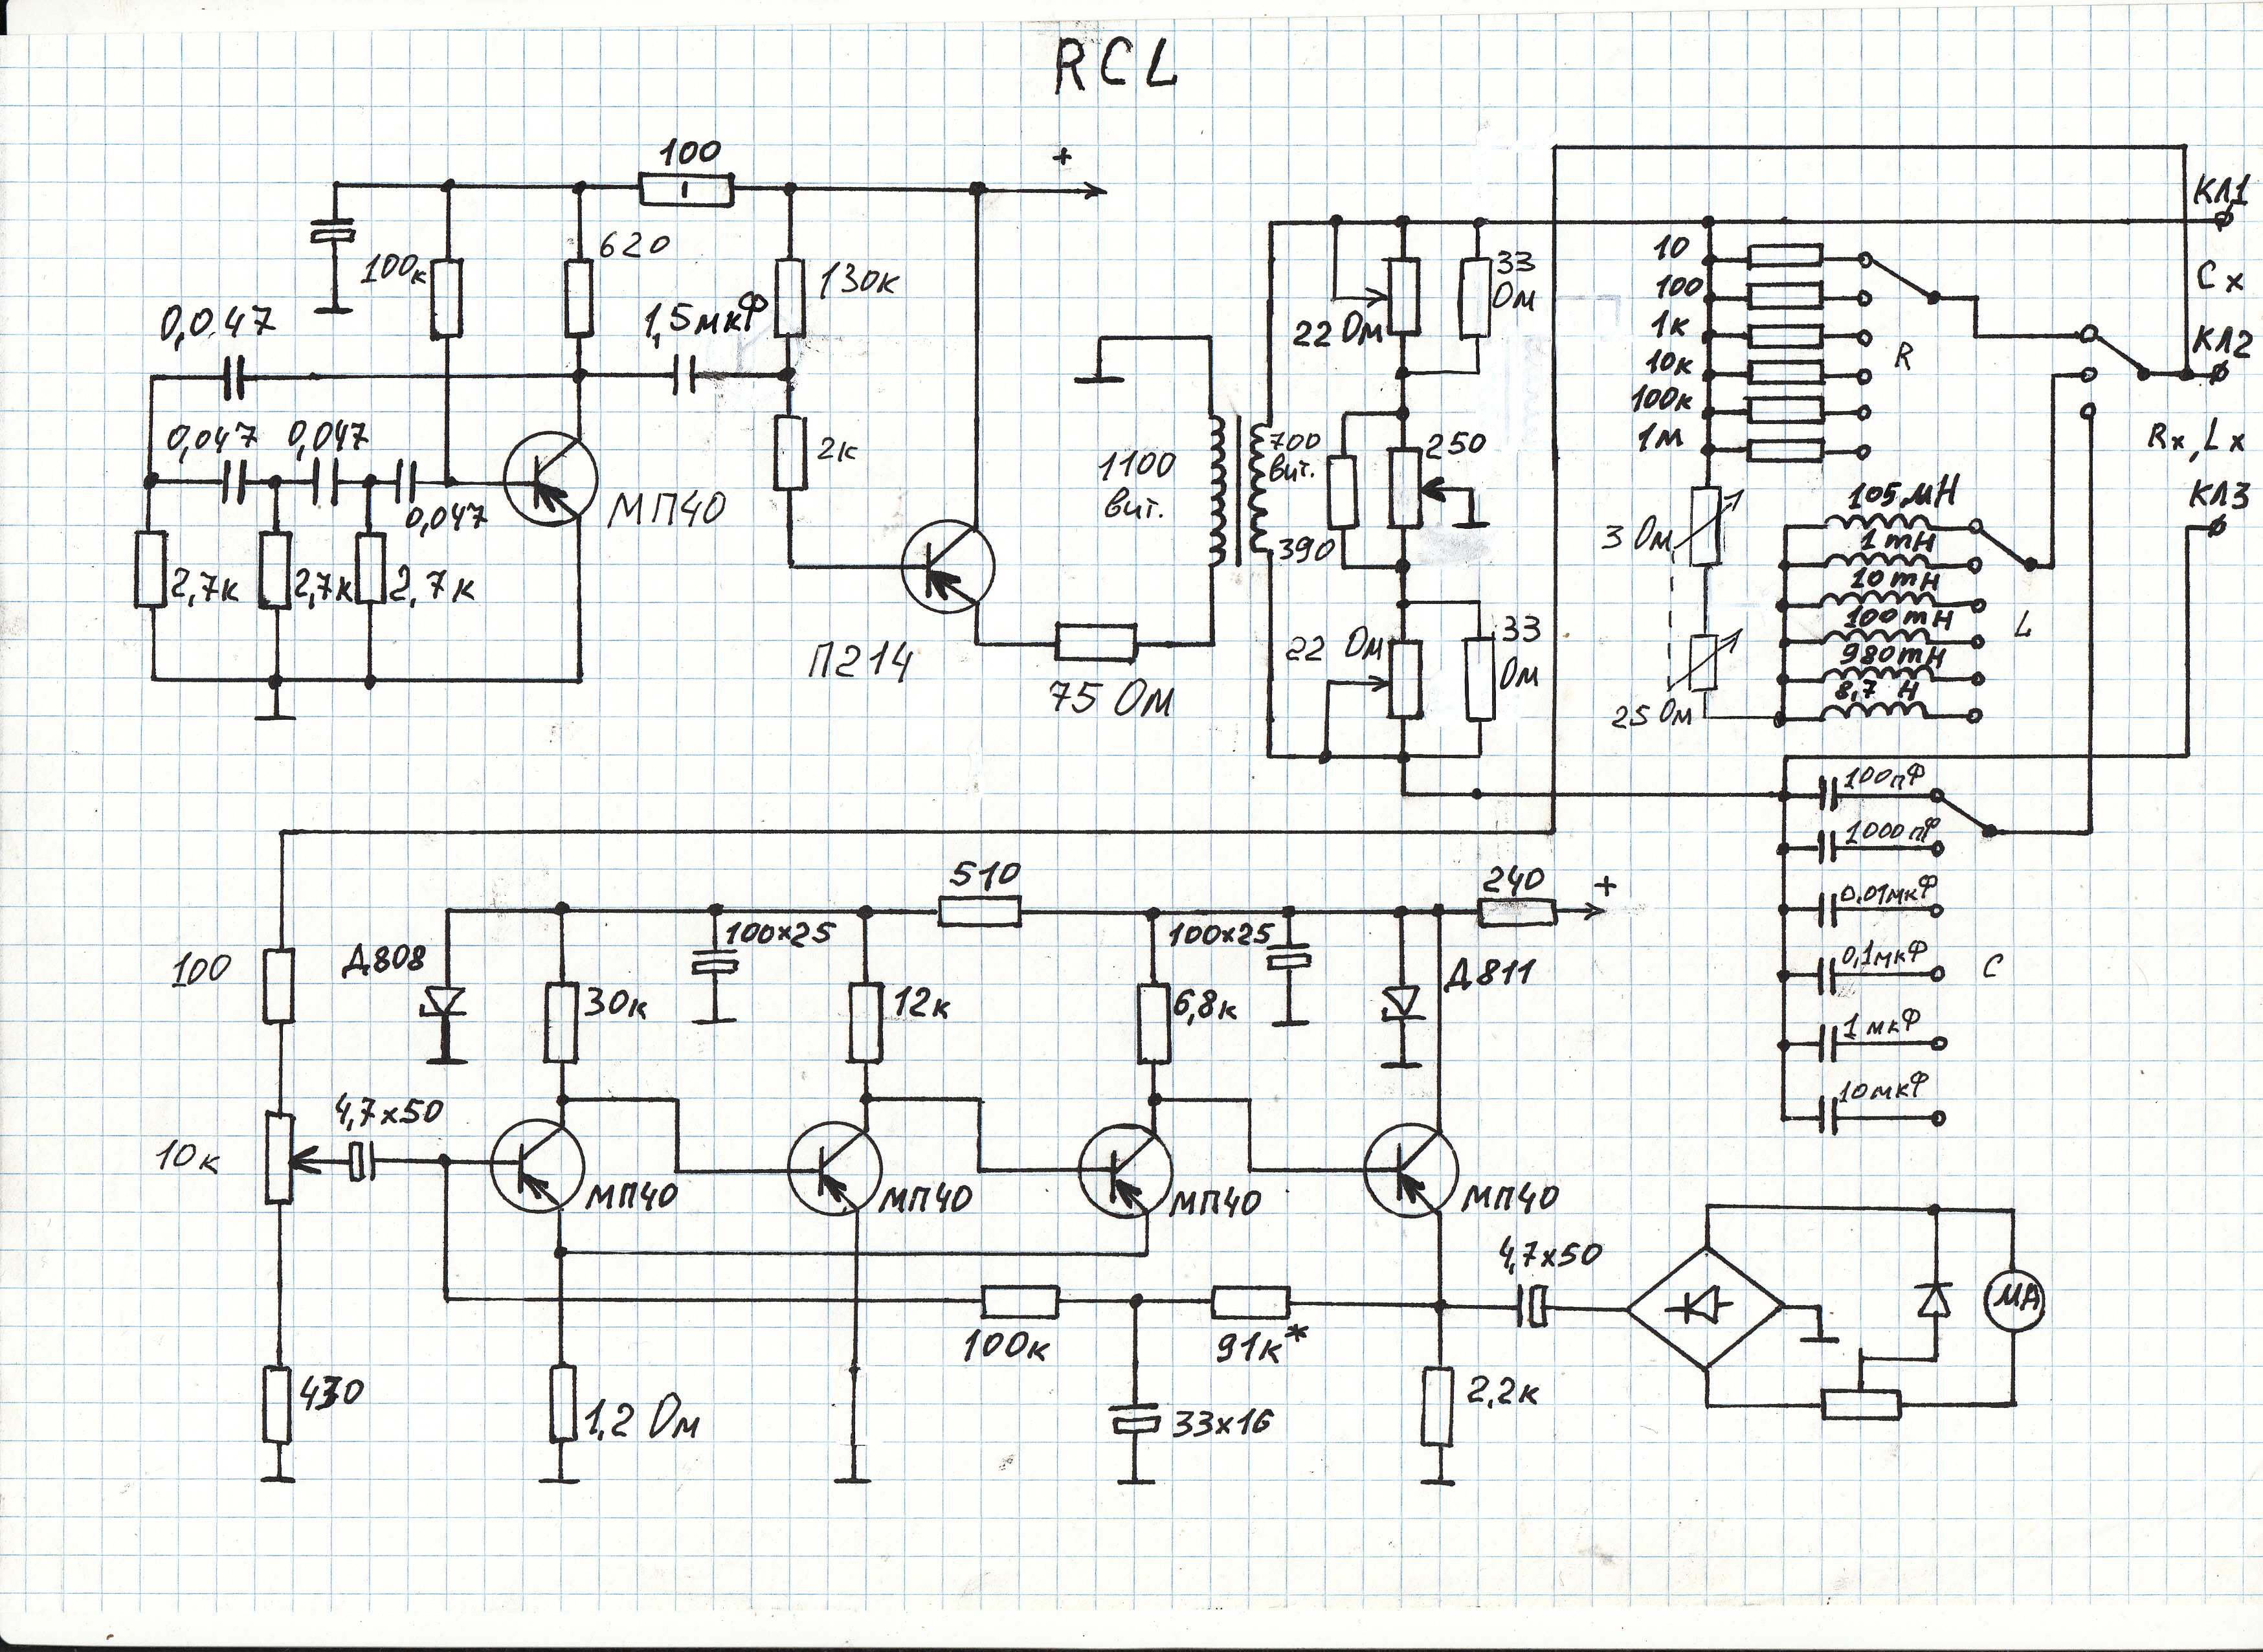 RCL
100
+
100к
620
130к
0,047
1,5мкФ
0,047
0,047
0,047
МП40
2к
2,7к
2,7к
2,7к
П214
75 Ом
1100
вит.
700
вит.
22 Ом
33
Ом
250
390
22 Ом
33
Ом
10
100
1к
10к
100к
1м
R
КЛ1
Сх
КЛ2
Rx, Lx
КЛ3
3 Ом
25 Ом
105 мН
1 mH
10 mH
100 mH
980 mH
8,7 H
L
100пФ
1000пФ
0,01мкФ
0,1мкФ
1 мкФ
10мкФ
С
100
Д808
30к
100х25
12к
510
100х25
6,8к
Д811
240
+
10к
4,7х50
МП40
МП40
МП40
МП40
4,7х50
430
1,2 Ом
100к
91к*
33х16
2,2к
МА